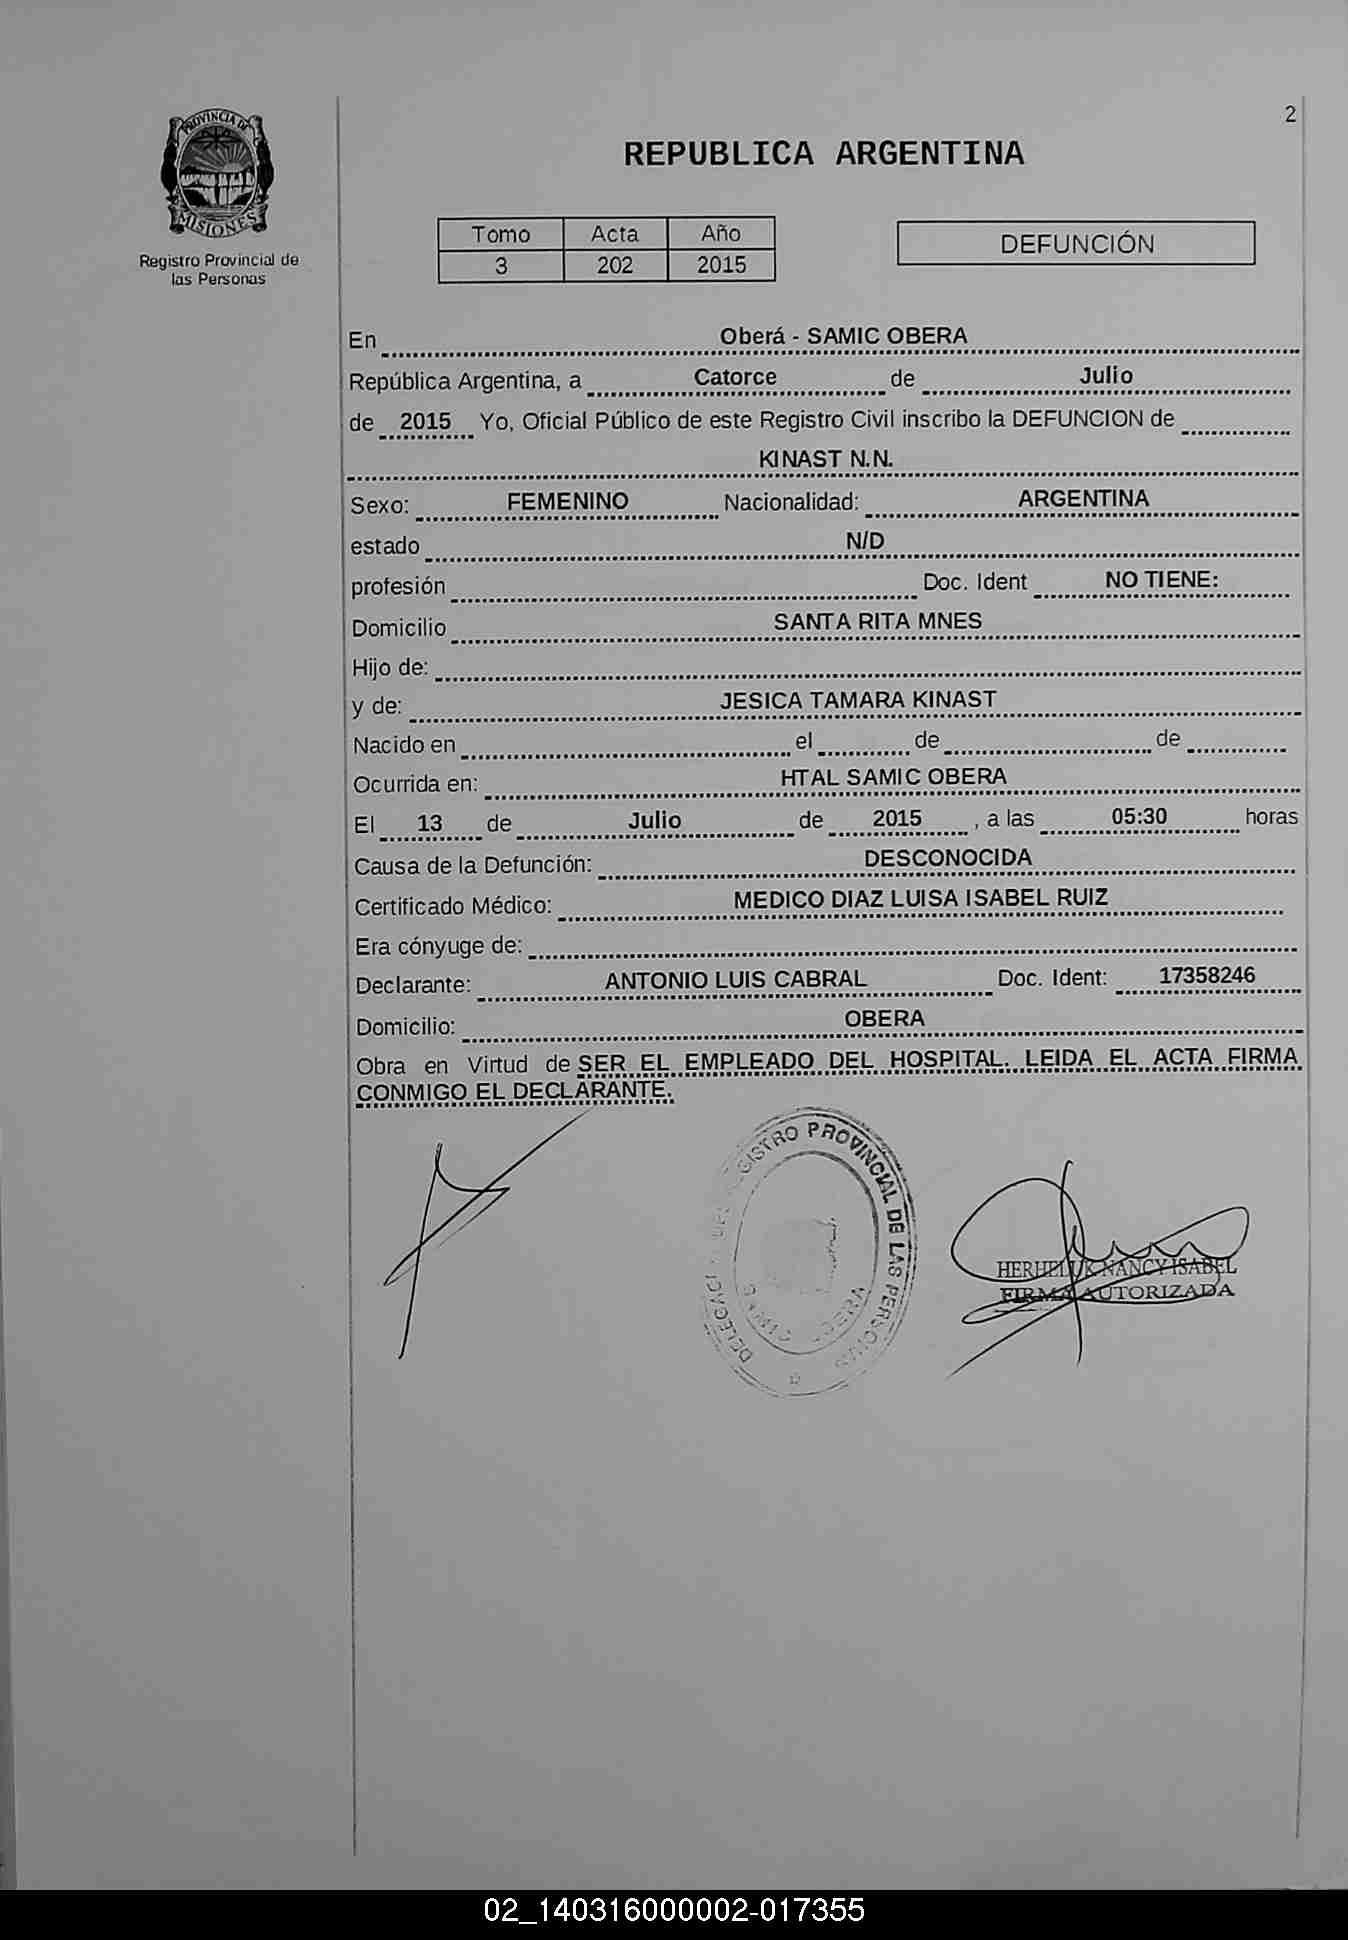 2
PROVINCIA DE
MISIONES
Registro Provincial de
las Personas
REPUBLICA ARGENTINA
Tomo Acta Año
3 202 2015
DEFUNCIÓN
En Oberá - SAMIC OBERA
República Argentina, a Catorce de Julio
de 2015 Yo, Oficial Público de este Registro Civil inscribo la DEFUNCION de
KINAST N.N.
Sexo: FEMENINO Nacionalidad: ARGENTINA
estado N/D
profesión Doc. Ident NO TIENE:
Domicilio SANTA RITA MNES
Hijo de:
y de: JESICA TAMARA KINAST
Nacido en el de de
Ocurrida en: HTAL SAMIC OBERA
El 13 de Julio de 2015 , a las 05:30 horas
Causa de la Defunción: DESCONOCIDA
Certificado Médico: MEDICO DIAZ LUISA ISABEL RUIZ
Era cónyuge de:
Declarante: ANTONIO LUIS CABRAL Doc. Ident: 17358246
Domicilio: OBERA
Obra en Virtud de SER EL EMPLEADO DEL HOSPITAL. LEIDA EL ACTA FIRMA
CONMIGO EL DECLARANTE.
PROVINCIAL DE LAS PERSONAS
HERHELUK NANCY ISABEL
FIRMA AUTORIZADA
02_140316000002-017355